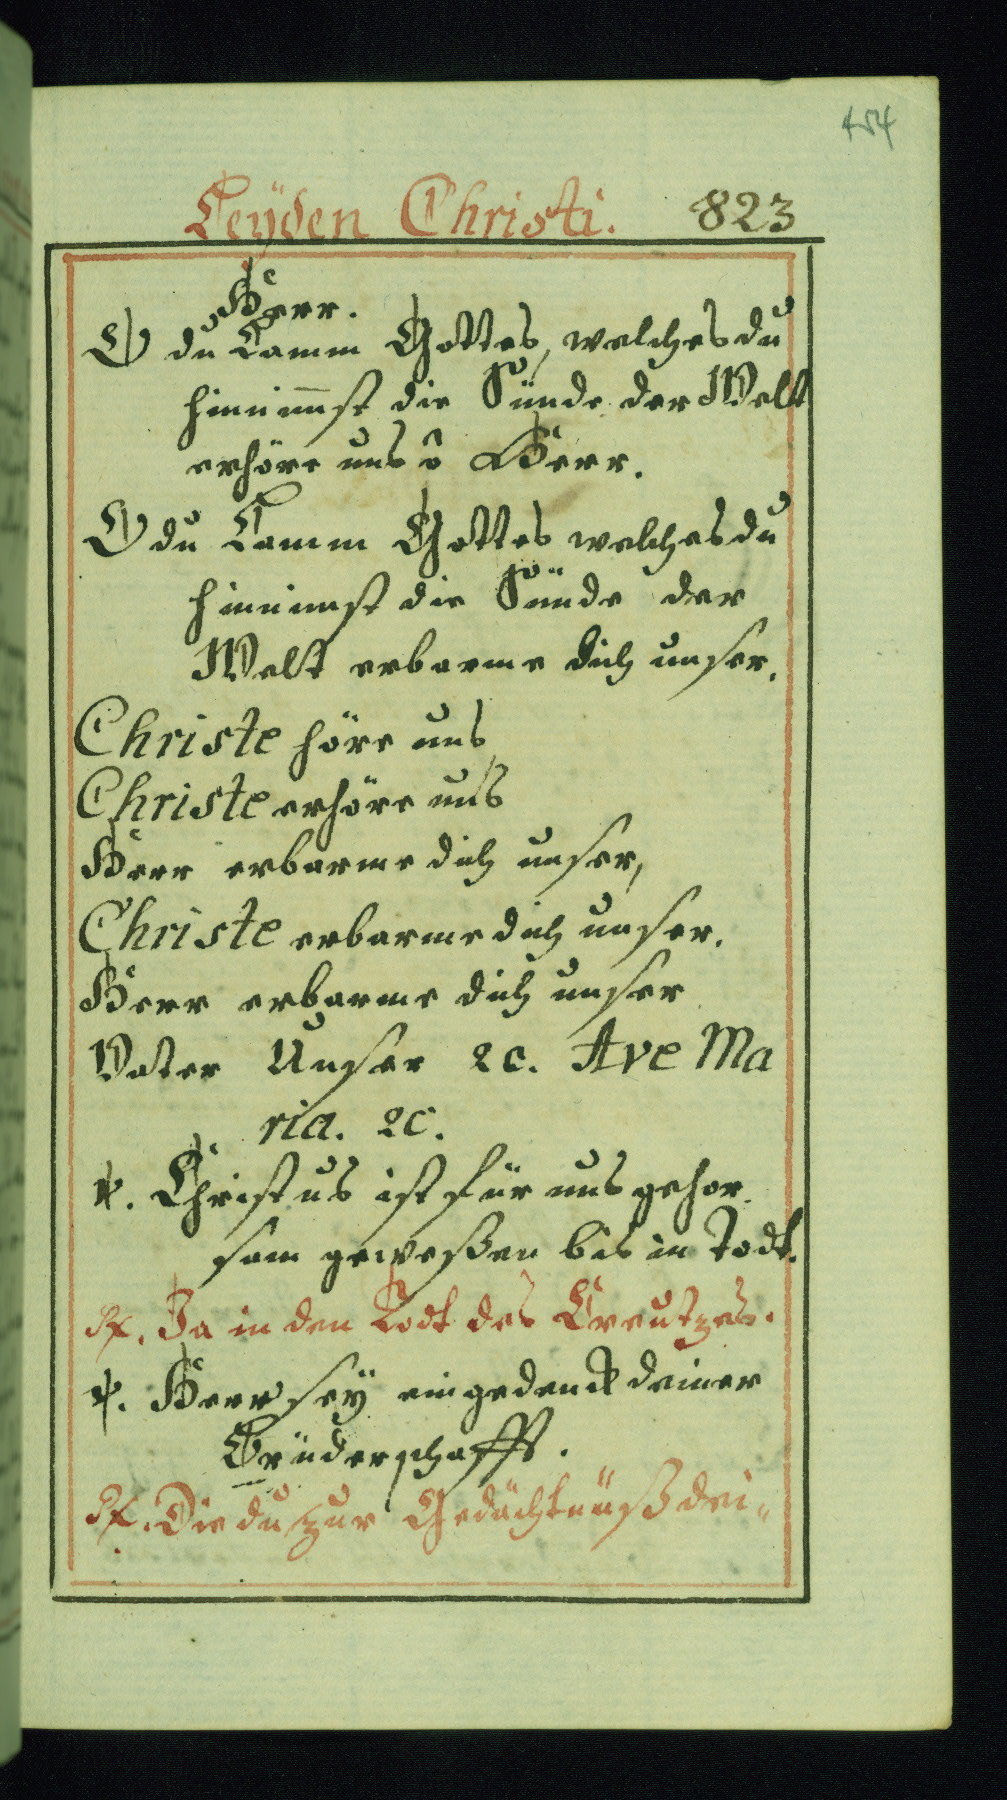 454
Leÿden Christi. 823
Herr.
O du Lamm Gottes, welches du
hinnim̅st die Sünde der Welt
erhöre uns ô Herr.
O du Lamm Gottes welches du
hinnimst die Sünde der
Welt erbarme dich unser.
Christe höre uns
Christe erhöre uns
Herr erbarme dich unser,
Christe erbarme dich unser.
Herr erbarme dich unser
Vater Unser ꝛc. Ave Ma
ria. ꝛc.
℣. Christus ist für uns gehor
sam geweßen bis in Todt.
℟. Ja in den Todt des Creutzes.
℣. Herr seÿ eingedenck deiner
Bruderschafft.
℟. Die du zur Gedächtnüß dei„